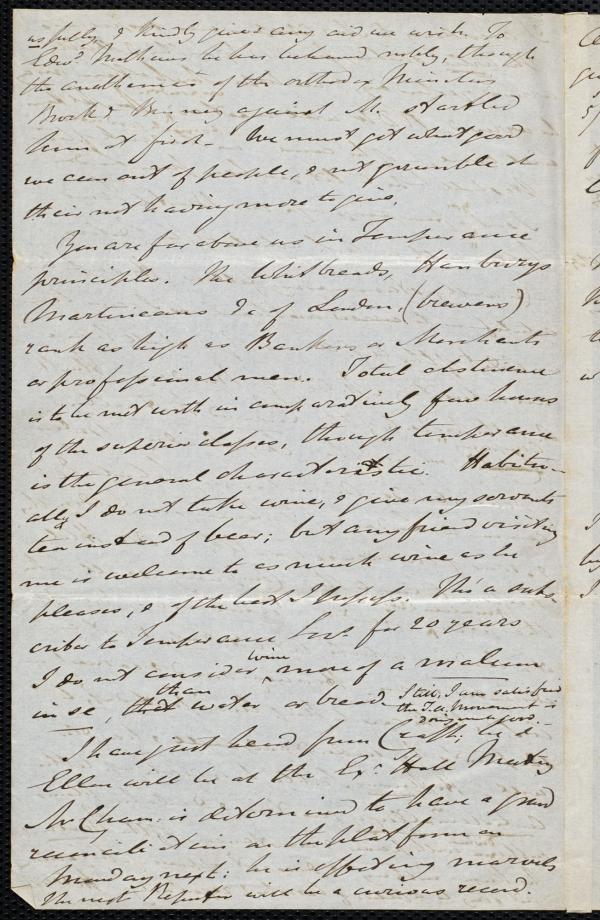 as fully, & kindly gives any aid we wish. To
Edwd. Mathews he has behaved nobly, though
the anathemas of the orthodox Ministers
Brock & Binney against M. startled
him at first. We must get what good
we can out of people, & not grumble at
their not having more to give.
You are far above us in Temperance
principles. The Whitbreads, Hanburys
Martineaus &c of London, (brewers)
rank as high as Bankers or Merchants
or professional men. Total abstinence
is to be met with in comparatively few homes
of the superior classes, though temperance
is the general characteristic. Habitu-
ally I do not take wine, & give my servants
tea instead of beer; but any friend visiting
me is welcome to as much wine as he
pleases, & of the best I possess. Tho' a subs-
criber to Temperance Socs. for 20 years
I do not consider wine more of a malum
in se, than water or bread. Still, I am satisfied
the T.a. movement is
doing much good.
I have just heard from Craft; he &
Ellen will be at the Exr. Hall Meeting
Mr Cham: is determined to have a grand
reconciliation on the platform on
Monday next: he is effecting marvels
The next Reporter will be a curious record.